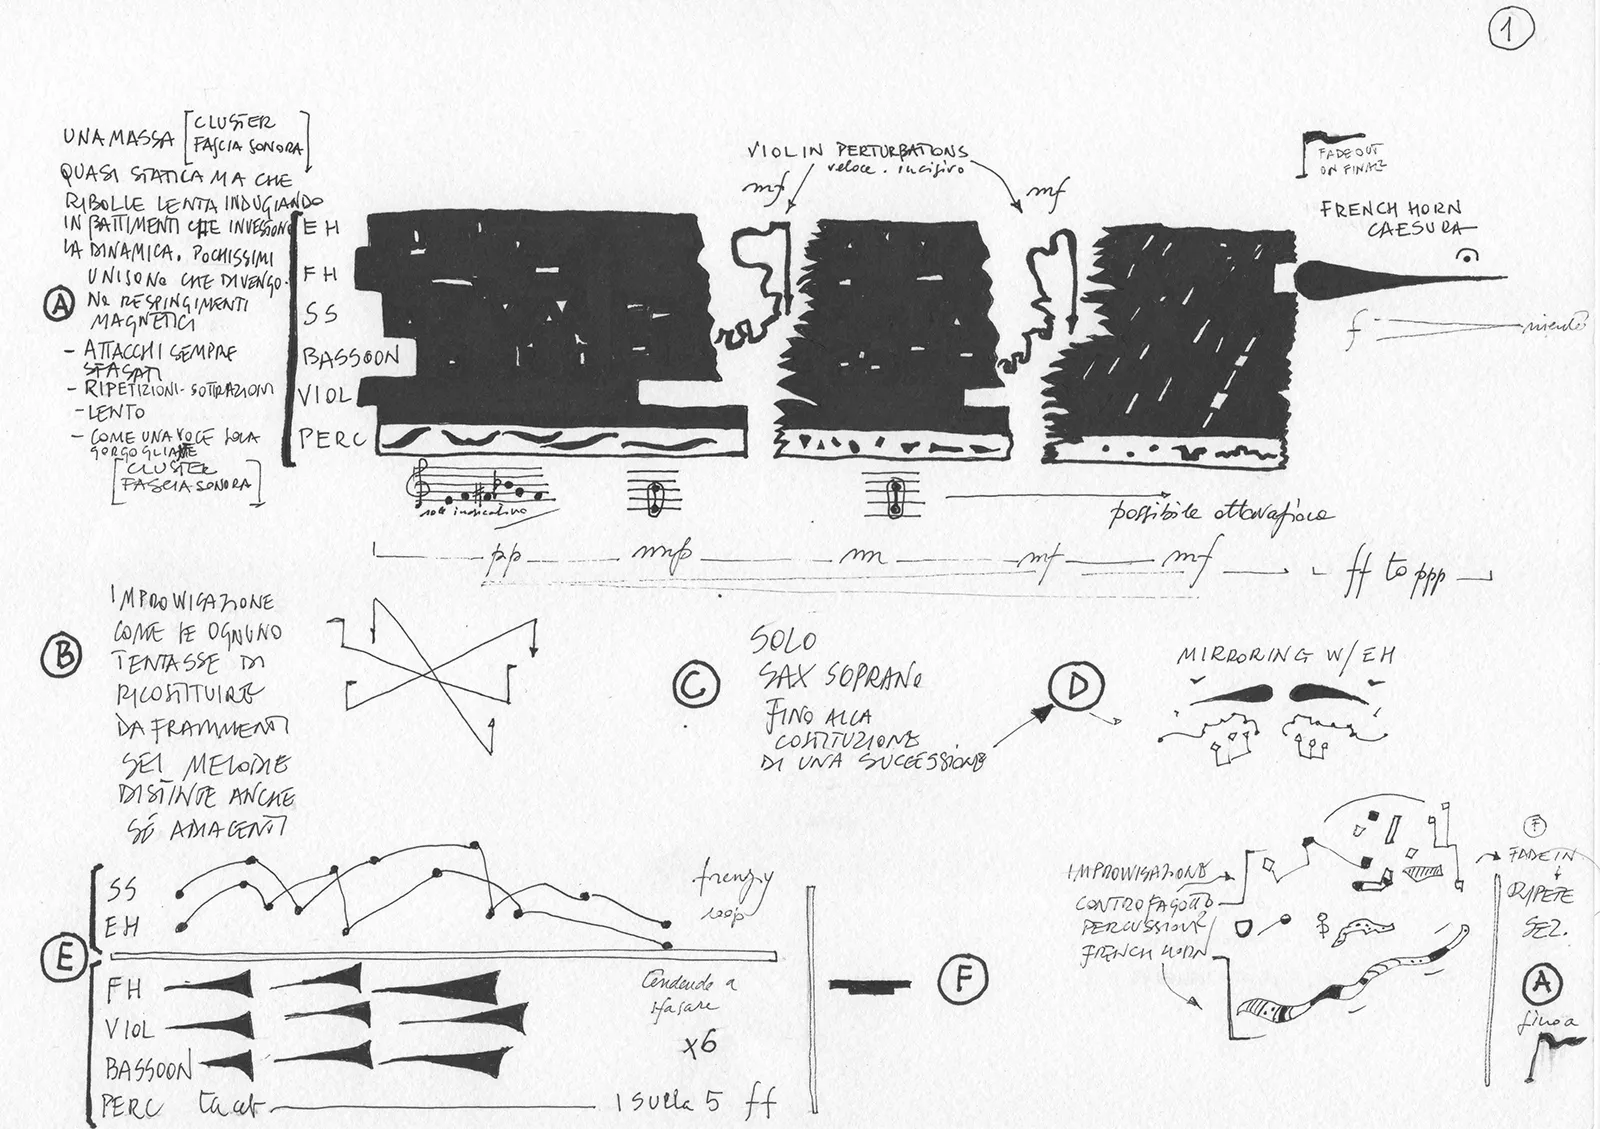 1
UNA MASSA [CLUSTER
FASCIA SONORA]
QUASI STATICA MA CHE
RIBOLLE LENTA INDUGIANDO
IN BATTIMENTI CHE INVESTONO
LA DINAMICA. POCHISSIMI
UNISONO CHE DIVENGO-
NO RESPINGIMENTI
MAGNETICI
- ATTACCHI SEMPRE
SFASATI
- RIPETIZIONI - SOTTRAZIONI
- LENTO
- COME UNA VOCE SOLA
GORGOGLIANTE
[CLUSTER
FASCIA SONORA]
A
EH
FH
SS
BASSOON
VIOL
PERC
VIOLIN PERTURBATIONS
veloce. incisivo
mf
mf
FADEOUT
ON FINAL
FRENCH HORN
CAESURA
f niente
solo indicativo
possibile
pp mp m mf mf ff to ppp
B
IMPROVVISAZIONE
COME SE OGNUNO
TENTASSE DI
RICOSTITUIRE
DA FRAMMENTI
SEI MELODIE
DISTINTE ANCHE
SE ADIACENTI
C
SOLO
SAX SOPRANO
FINO ALLA
COSTITUZIONE
DI UNA SUCCESSIONE
D
MIRRORING W/ EH
E
SS
EH
frenzy
loop
FH
VIOL
BASSOON
PERC
tendende a
sfasare
x6
1 SULLA 5 ff
F
IMPROVISAZIONE
CONTROFAGOTTO
PERCUSSIONE/
FRENCH HORN
F
FADE IN
RIPETE
SEZ.
A
fino a